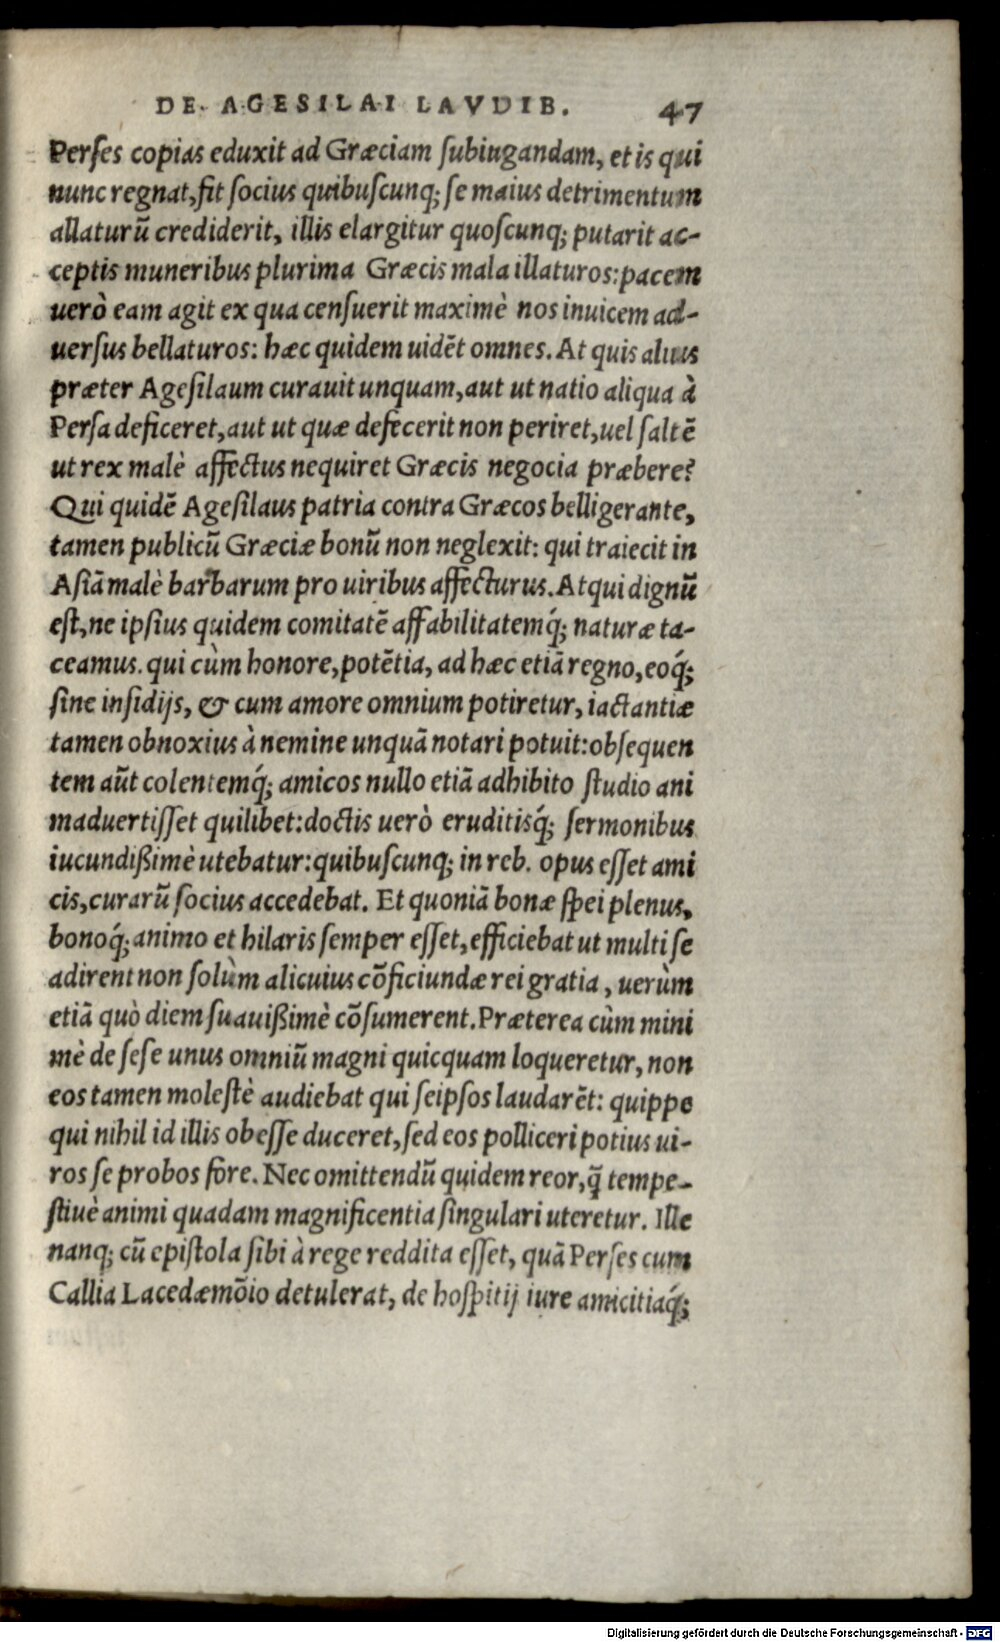 DE AGESILAI LAVDIB. 47
Perſes copias eduxit ad Græciam ſubiugandam, et is qui
nunc regnat, fit ſocius quibuſcunq; ſe maius detrimentum
allaturū crediderit, illis elargitur quoſcunq; putarit ac-
ceptis muneribus plurima Græcis mala illaturos: pacem
uerò eam agit ex qua cenſuerit maximè nos inuicem ad-
uerſus bellaturos: hæc quidem uidēt omnes. At quis alius
præter Ageſilaum curauit unquam, aut ut natio aliqua à
Perſa deficeret, aut ut quæ defecerit non periret, uel ſaltē
ut rex malè affectus nequiret Græcis negocia præbere?
Qui quidē Ageſilaus patria contra Græcos belligerante,
tamen publicū Græciæ bonū non neglexit: qui traiecit in
Aſiā malè barbarum pro uiribus affecturus. Atqui dignū
eſt, ne ipſius quidem comitatē affabilitatemq́; naturæ ta-
ceamus. qui cùm honore, potētia, ad hæc etiā regno, eoq́;
ſine inſidijs, & cum amore omnium potiretur, iactantiæ
tamen obnoxius à nemine unquā notari potuit: obſequen
tem aūt colentemq́; amicos nullo etiā adhibito ſtudio ani
maduertiſſet quilibet: doctis uerò eruditisq́; ſermonibus
iucundißimè utebatur: quibuſcunq; in reb. opus eſſet ami
cis, curarū ſocius accedebat. Et quoniā bonæ ſpei plenus,
bonoq́; animo et hilaris ſemper eſſet, efficiebat ut multi ſe
adirent non ſolùm alicuius cōficiundæ rei gratia, uerùm
etiā quò diem ſuauißimè cōſumerent. Præterea cùm mini
mè de ſeſe unus omniū magni quicquam loqueretur, non
eos tamen moleſtè audiebat qui ſeipſos laudarēt: quippe
qui nihil id illis obeſſe duceret, ſed eos polliceri potius ui-
ros ſe probos fore. Nec omittendū quidem reor, q̄ tempe-
ſtiuè animi quadam magnificentia ſingulari uteretur. Ille
nanq; cū epiſtola ſibi à rege reddita eſſet, quā Perſes cum
Callia Lacedæmōio detulerat, de hoſpitij iure amicitiaq́;
Digitalisierung gefördert durch die Deutsche Forschungsgemeinschaft - DFG